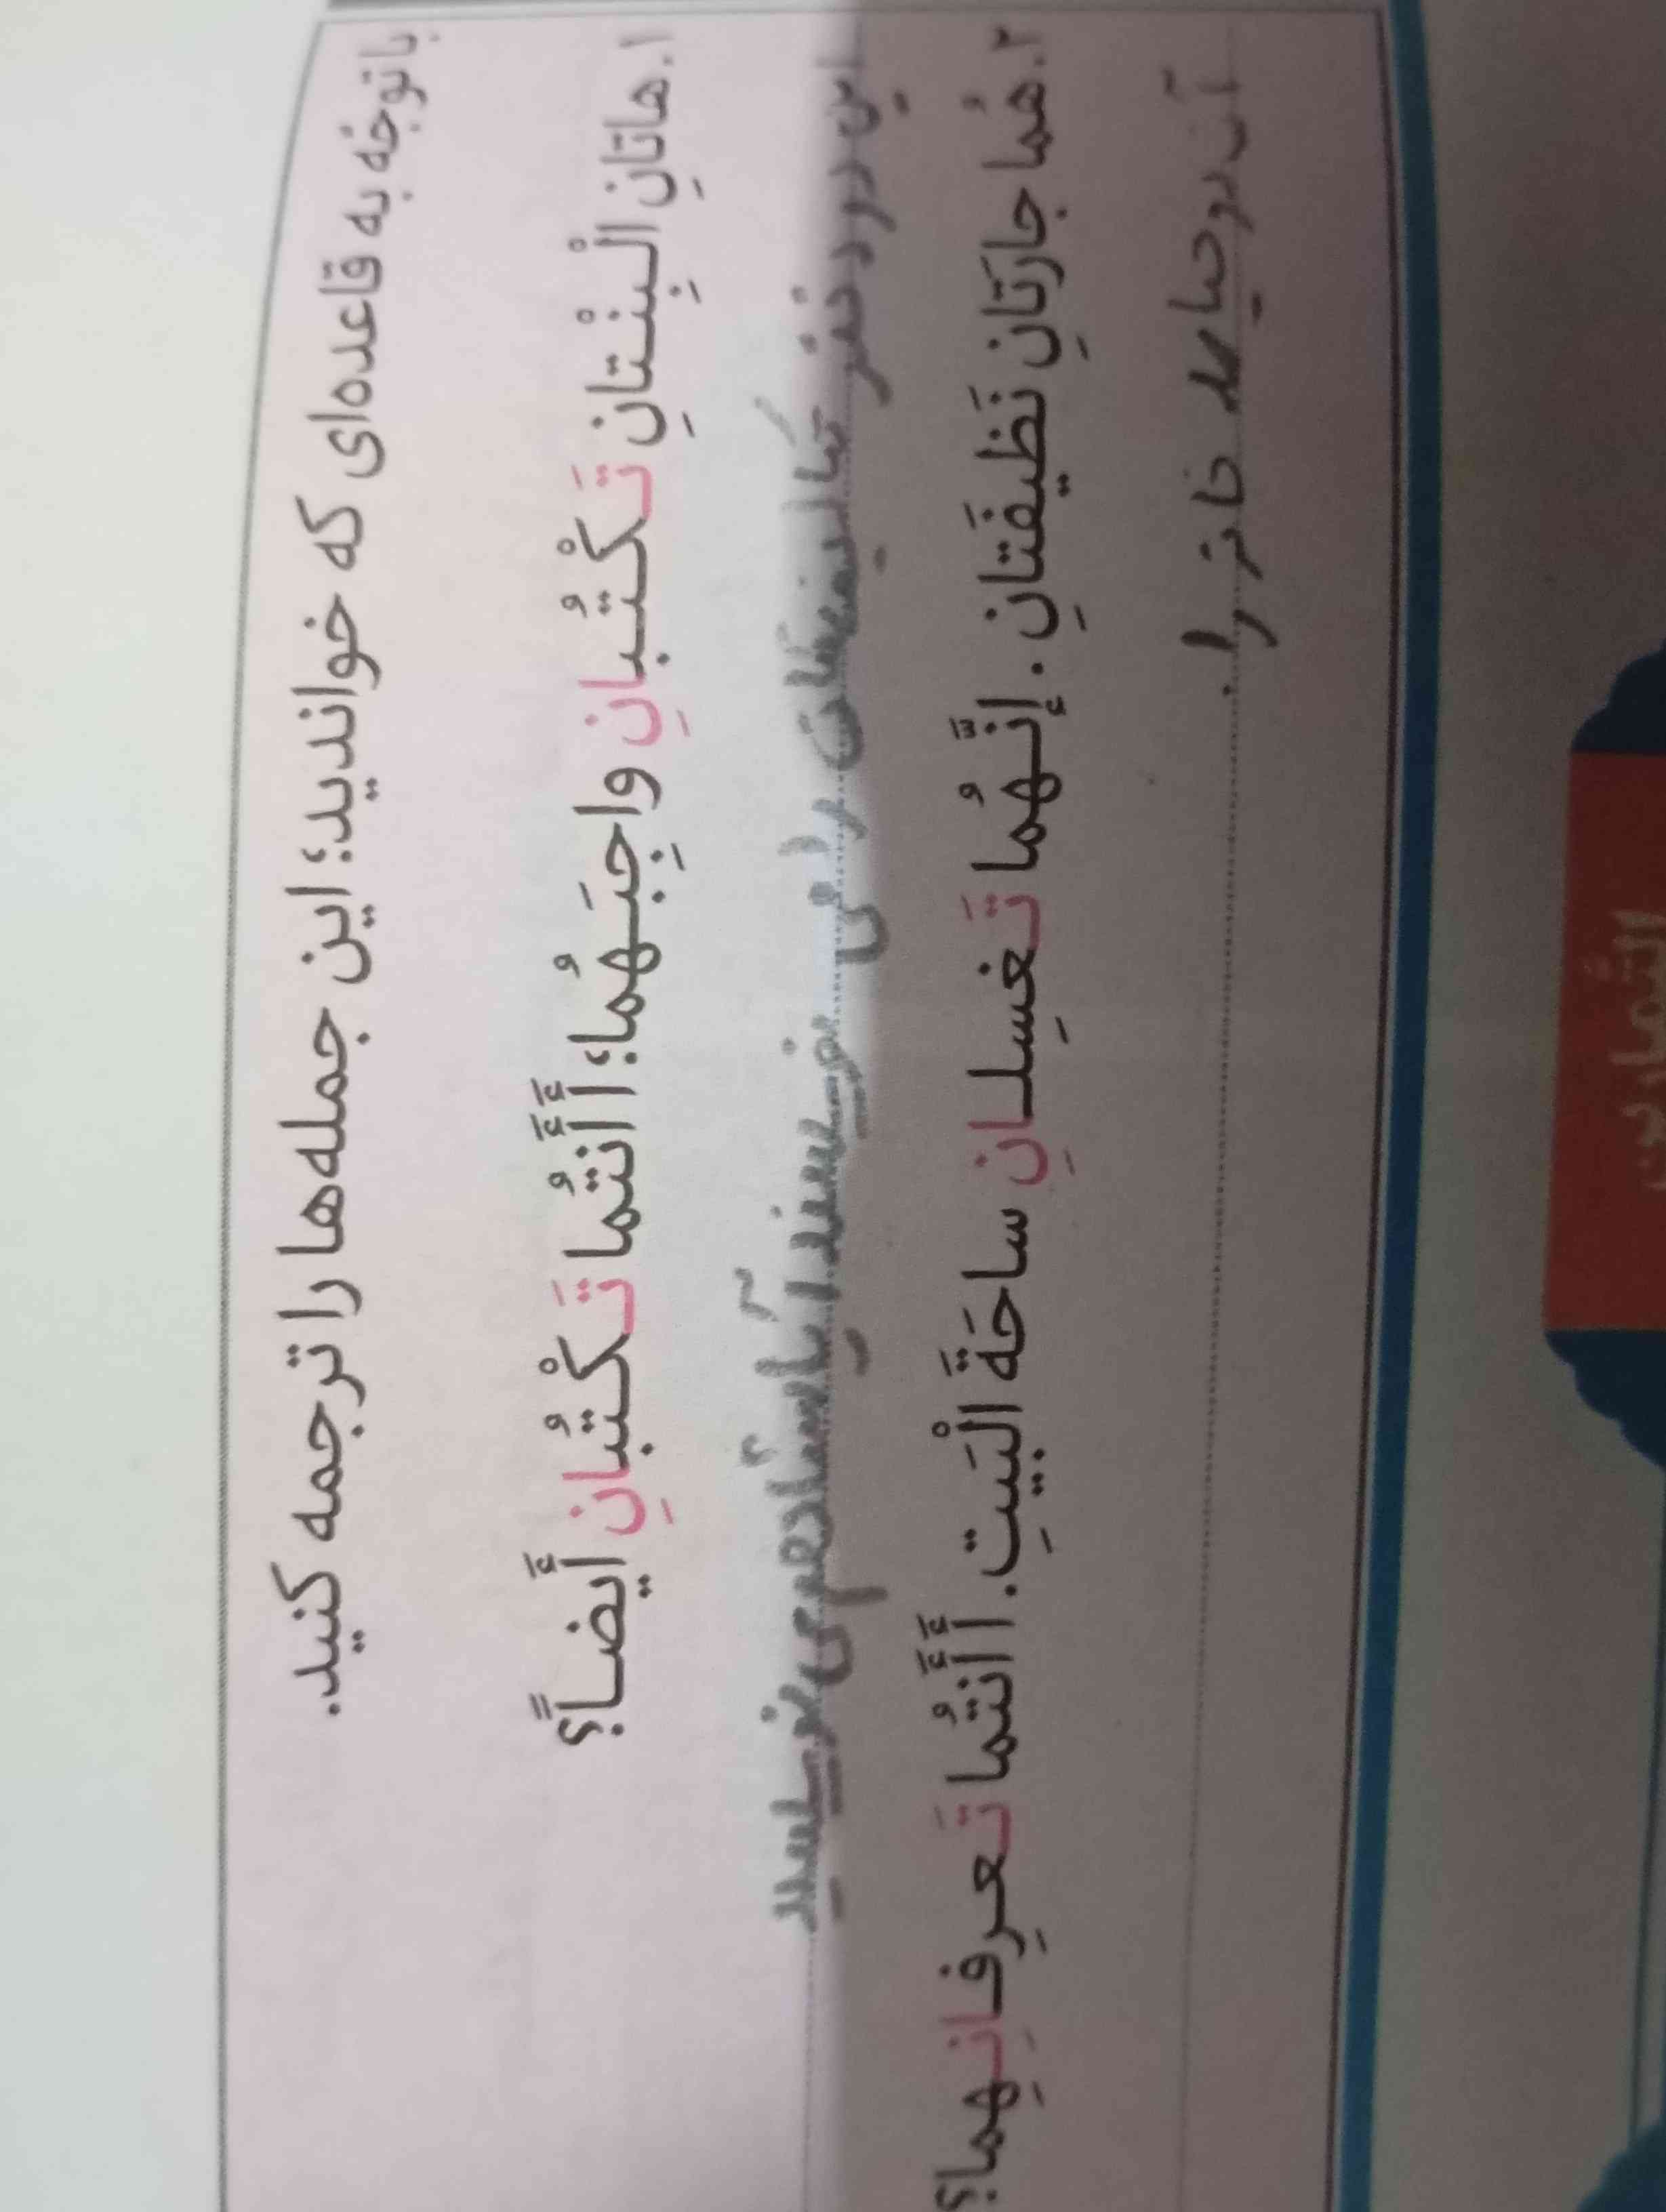 با توجّه به قاعده‌ای که خواندید؛ این جمله‌ها را ترجمه کنید.
۱. هاتانِ الْبِنْتانِ تَکْتُبانِ واجِبَهُما؛ أَ أَنتُما تَکْتُبانِ أَیضاً؟
این دو دختر تکالیفشان را می نویسند آیا شما هم می نویسید
۲. هُما جارَتانِ نَظیفَتانِ. إنَّهُما تَغسِلانِ ساحَةَ الْبَیتِ. أَ أَنتُما تَعرِفانِهِما؟
آن دو
التَّمارین